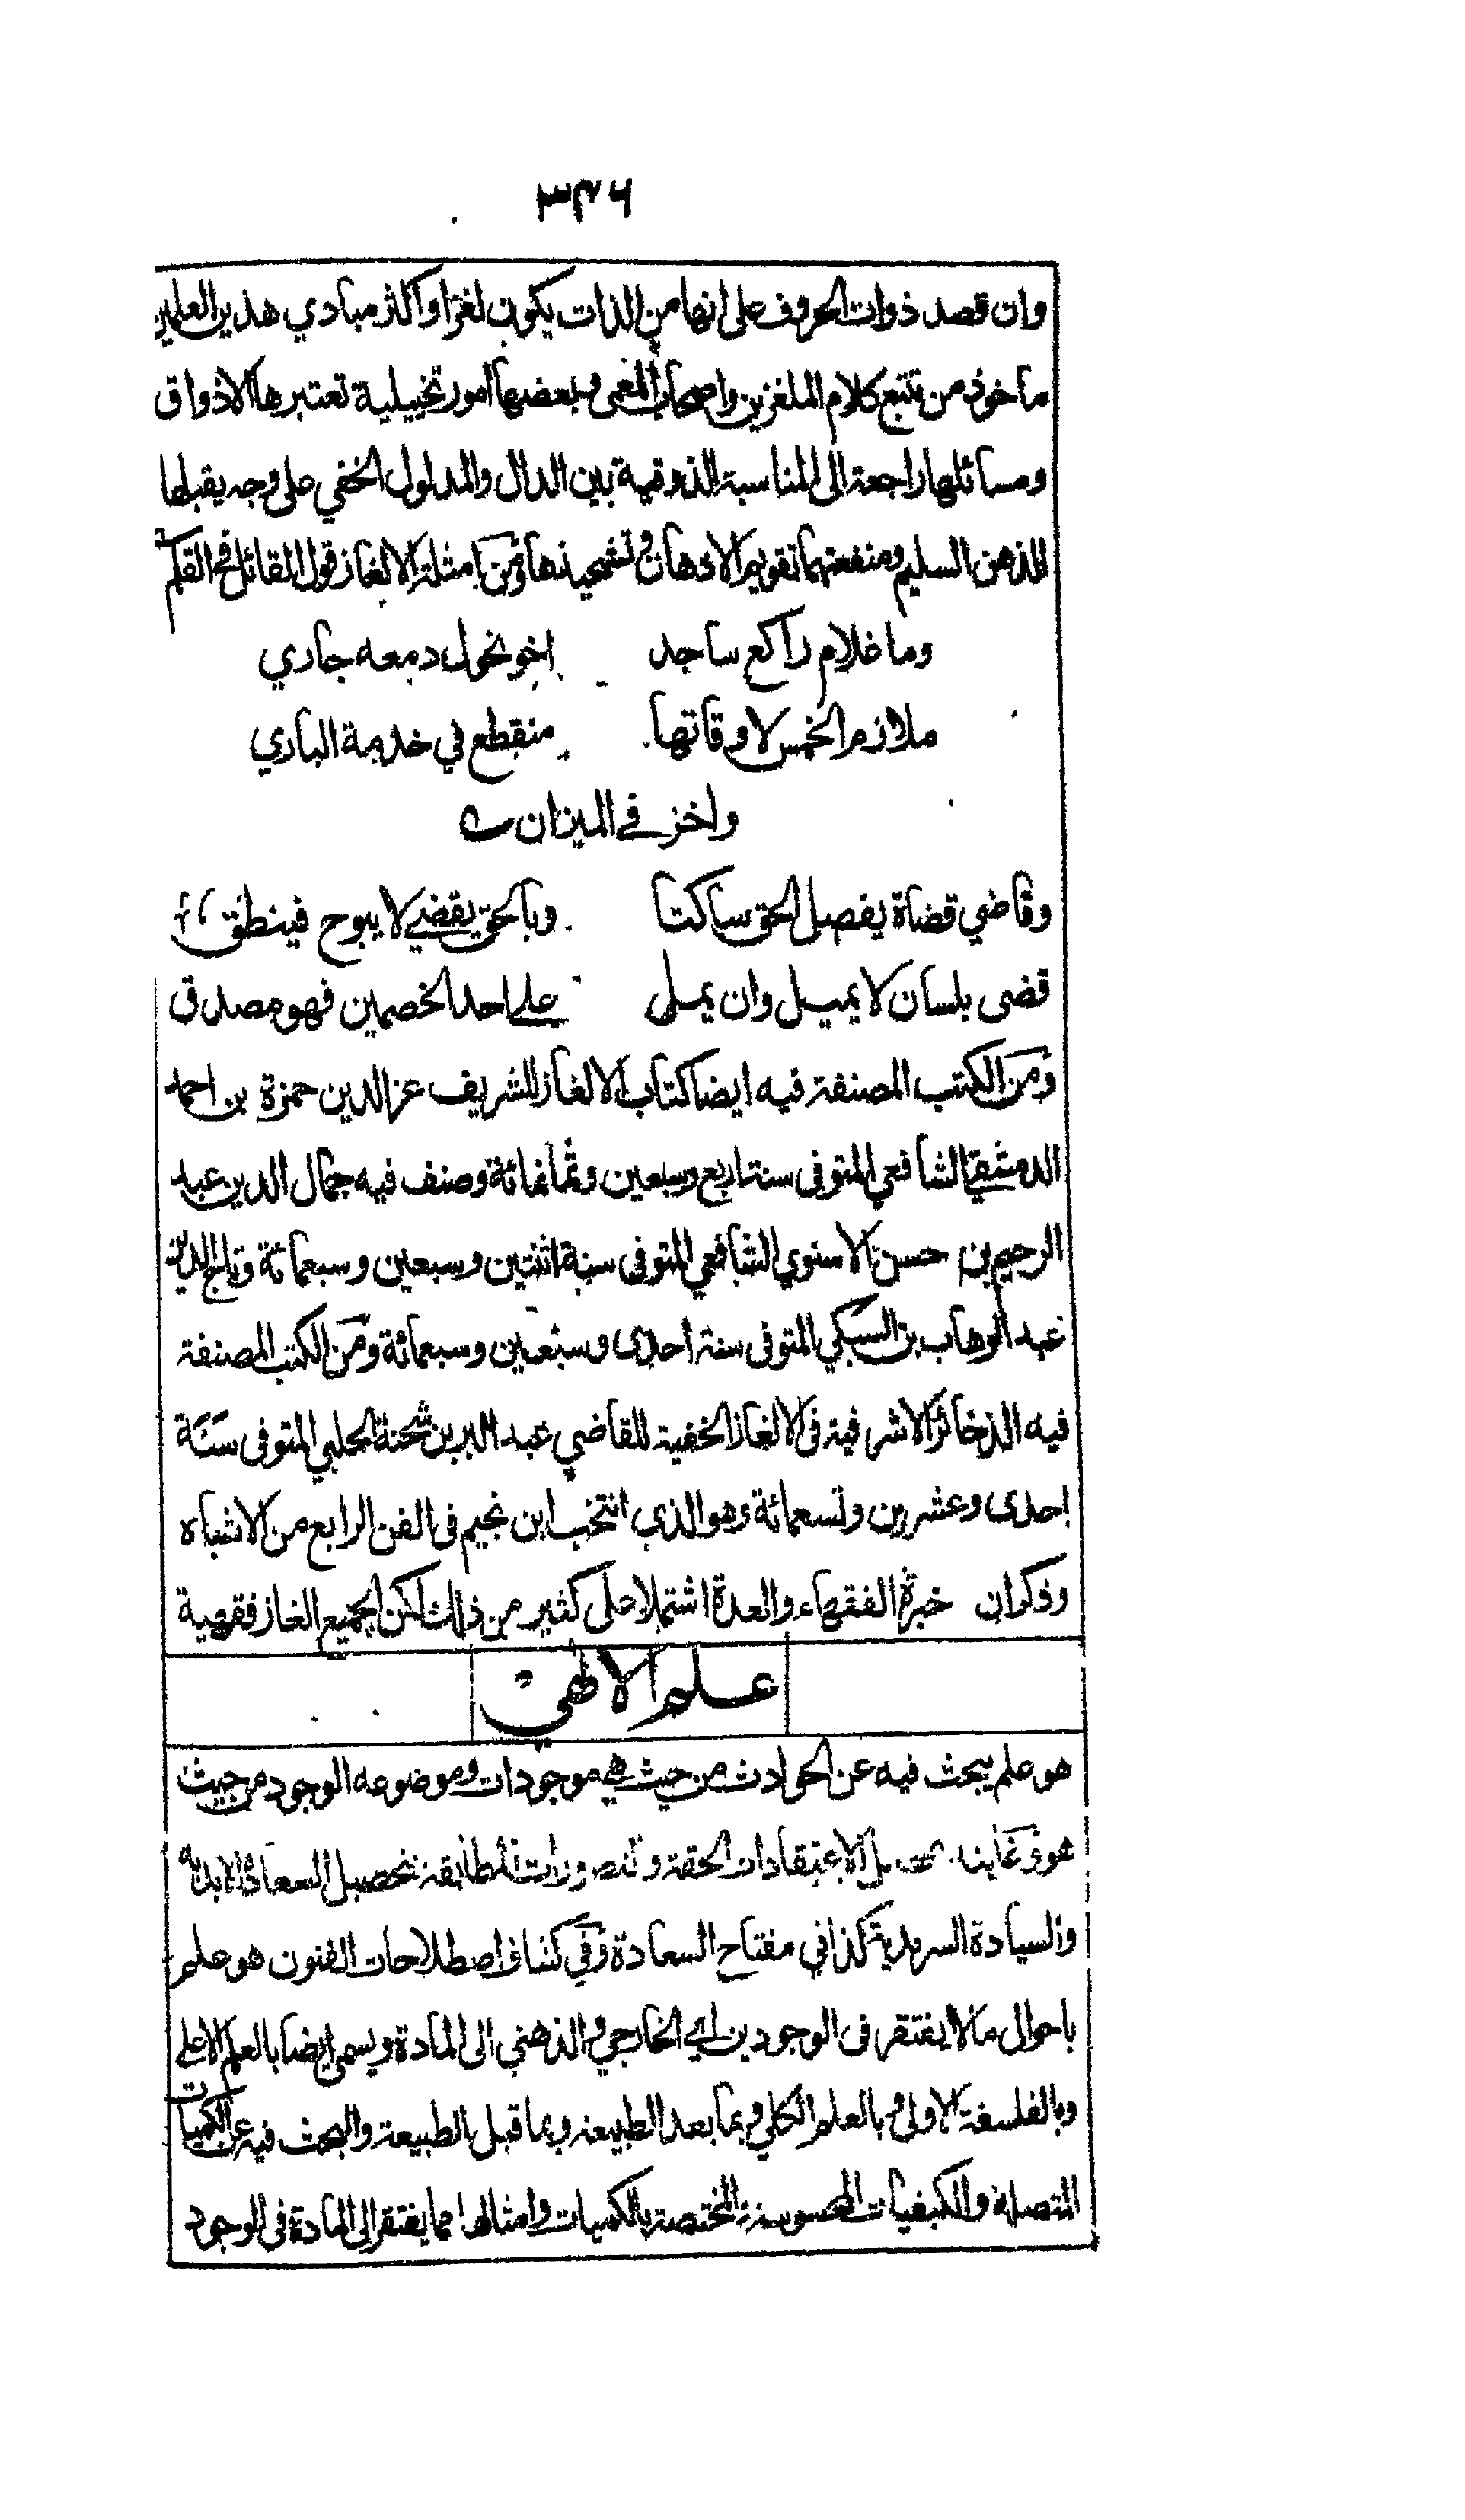 ٣٤٦
وان قصد ذوات الحروف على انها من الذات يكون لغزا واكثر مبادي هذين العلمين
ماخوذ من تتبع كلام الملغزين واصحاب المعمى وبعضها امور تخييلية تعتبرها الاذواق
ومسائلها راجعة الى المناسبة الذوقية بين الدال والمدلول الخفي على وجه يقبلها
الذهن السليم ومنفعتهما تقويم الاذهان وتشحيذها ومن امثلة الالغاز قول القائل في القلم
وما غلام راكع ساجد اخو نحول دمعه جاري
ملازم الخمس لاوقاتها منقطع في خدمة الباري
واخر في الميزان
وقاضي قضاة يفصل الحق ساكتا وبالحق يقضي لا يبوح فينطق
قضى بلسان لا يميل وان يمل على احد الخصمين فهو مصدق
ومن الكتب المصنفة فيه ايضا كتاب الالغاز للشريف عز الدين حمزة بن احمد
الدمشقي الشافعي المتوفى سنة اربع وسبعين وثمانمائة وصنف فيه جمال الدين عبد
الرحيم بن حسن الاسنوي الشافعي المتوفى سنة اثنتين وسبعين وسبعمائة وتاج الدين
عبد الوهاب بن السبكي المتوفى سنة احدى وسبعين وسبعمائة ومن الكتب المصنفة
فيه الذخائر الاشرفية فى الالغاز الخفية للقاضي عبد البر بن شحنة الحلبي المتوفى سنة
احدى وعشرين وتسعمائة وهو الذي انتخب ابن نجيم فى الفن الرابع من الاشباه
وذكر ان خبرة الفقهاء والعدة اشتملا على كثير من ذلك لكن الجميع الغاز فقهية
علم الالهي
هو علم يبحث فيه عن الحوادث من حيث هي موجودات وموضوعه الوجود من حيث
هو وغايته تحصيل الاعتقادات الحقة والتصورات المطابقة لتحصيل السعادة الابدية
والسيادة السرمدية كذا في مفتاح السعادة وفي كشاف اصطلاحات الفنون هو علم
باحوال ما لا يفتقر فى الوجودين اي الخارجي والذهني الى المادة ويسمى ايضا بالعلم الاعلى
وبالفلسفة الاولى وبالعلم الكلي وبما بعد الطبيعة وبما قبل الطبيعة والبحث فيه عن الكميات
المتصلة والكيفيات المحسوسة المختصة بالكميات وامثالها مما يفتقر الى المادة فى الوجود